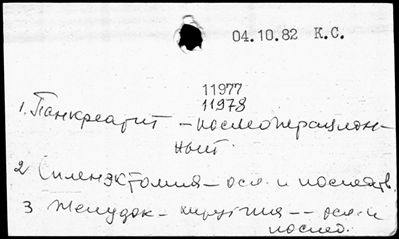 04.10.82 К.С.
11977
11978
1. Панкреатит – послеоперацион-
ный.
2 Спленэктомия – осл. и последств.
3 Желудок – хирургия – – осл. и
послед.